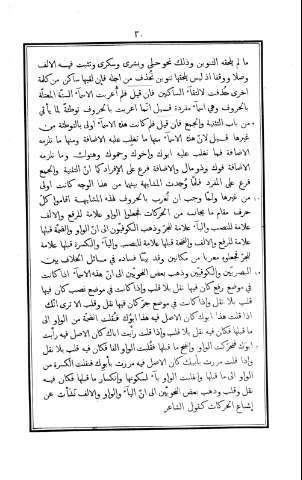 ٣٠
ما لم يلحقه التنوين وذلك نحو حبلى وبشرى وسكرى وتثبت فيه الالف
وصلا ووقفا اذ ليس يلحقها تنوين تحذف من اجله فان لقيها ساكن من كلمة
اخرى حذفت لالتقاء الساكنين فان قيل فلم أعربت الاسماء الستة المعتلة
بالحروف وهى اسماء مفردة قيل انما اعربت بالحروف توطئة لما يأتى
من باب التثنية والجمع فان قيل فلم كانت هذه الاسماء اولى بالتوطئة من
غيرها قيل لانّ هذه الاسماء منها ما تغلب عليه الاضافة ومنها ما تلزمه
الاضافة فما تغلب عليه ابوك واخوك وحموك وهنوك وما تلزمه
الاضافة فوك وذو مال والاضافة فرع على الإفراد كما انّ التثنية والجمع
فرع على المفرد فلمّا وُجدت المشابهة بينهما من هذا الوجه كانت اولى
من غيرها ولمّا وجب ان تُعرب بالحروف لهذه المشابهة اقاموا كلّ
حرف مقام ما يجانسه من الحركات فجعلوا الواو علامة للرفع والالف
علامة للنصب والياء علامة للجرّ وذهب الكوفيّون الى انّ الواو والضمّة قبلها
علامة للرفع والالف والفتحة قبلها علامة للنصب والياء والكسرة قبلها علامة
للجرّ فجعلوه معربا من مكانين وقد بيّنّا فساده فى مسائل الخلاف بين
البصريّين والكوفيّين وذهب بعض النحويّين الى انّ هذه الاسماء اذا كانت
فى موضع رفع كان فيها نقل بلا قلب واذا كانت فى موضع نصب كان فيها
قلب بلا نقل واذا كانت فى موضع جرّ كان فيها نقل وقلب الا ترى انّك
اذا قلت هذا ابوك كان الاصل فيه هذا ابَوُك فنُقلت الضمة من الواو الى
ما قبلها فكان فيه نقل بلا قلب واذا قلت رأيت اباك كان الاصل فيه رأيت
ابوك فتحرّكت الواو وانفتح ما قبلها فقُلبت الواو الفا فكان فيه قلب بلا نقل
واذا قلت مررت بأبيك كان الاصل فيه مررت بأبوك فنقلت الكسرة من
الواو الى ما قبلها وانقلبت الواو ياء لسكونها وانكسار ما قبلها فكان فيه
نقل وقلب وذهب بعض النحويّين الى انّ الياء والواو والالف نشأت عن
إشباع الحركات كقول الشاعر